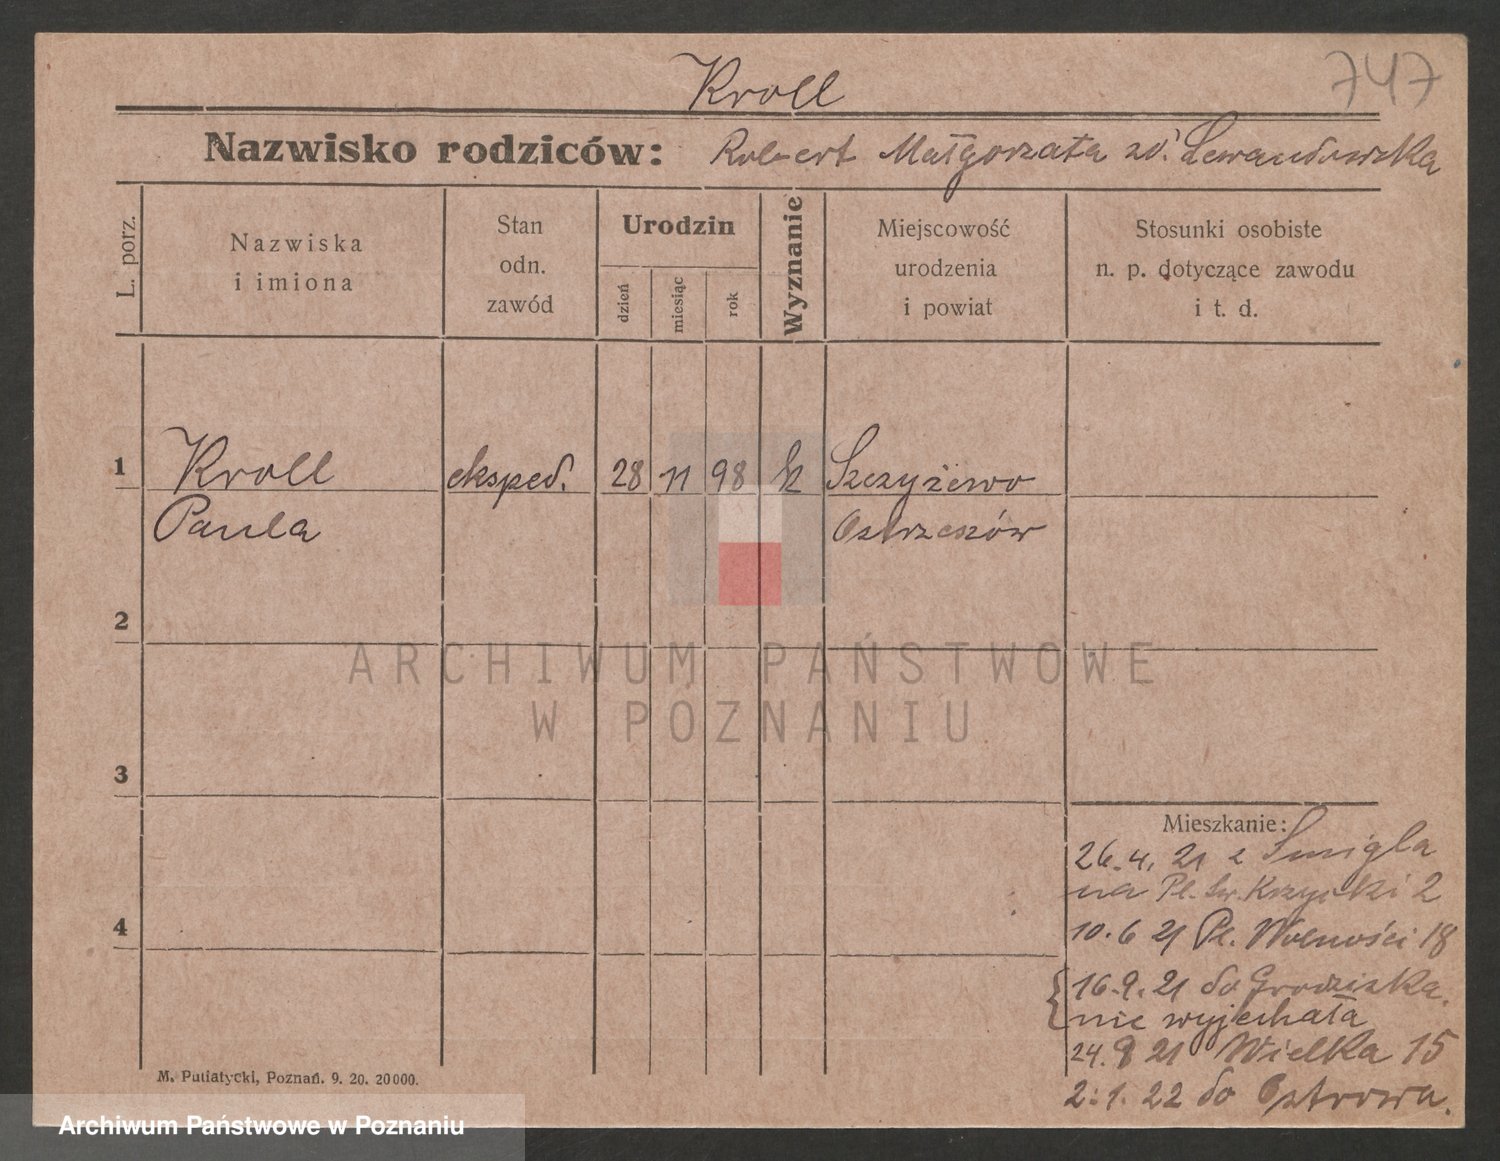 747
Kroll
Nazwisko rodziców: Robert Małgorzata zd. Lewandowska
L. porz.
Nazwiska
i imiona
Stan
odn.
zawód
Urodzin
dzień
miesiąc
rok
Wyznanie
Miejscowość
urodzenia
i powiat
Stosunki osobiste
n. p. dotyczące zawodu
i t. d.
1 Kroll eksped. 28 11 98 k Szczyżewo
Paula Ostrzeszów
2
3
4
Mieszkanie:
26.4. 21 z Smigla
na Pl. Św. Krzyski 2
10.6 21 Pl. Wolności 18
{16.9. 21 do Grodziska.
nie wyjechała
24.9 21 Wielka 15
2.1. 22 do Ostrowa.
M. Putiatycki, Poznań. 9. 20. 20000.
ARCHIWUM PAŃSTWOWE
W POZNANIU
Archiwum Państwowe w Poznaniu